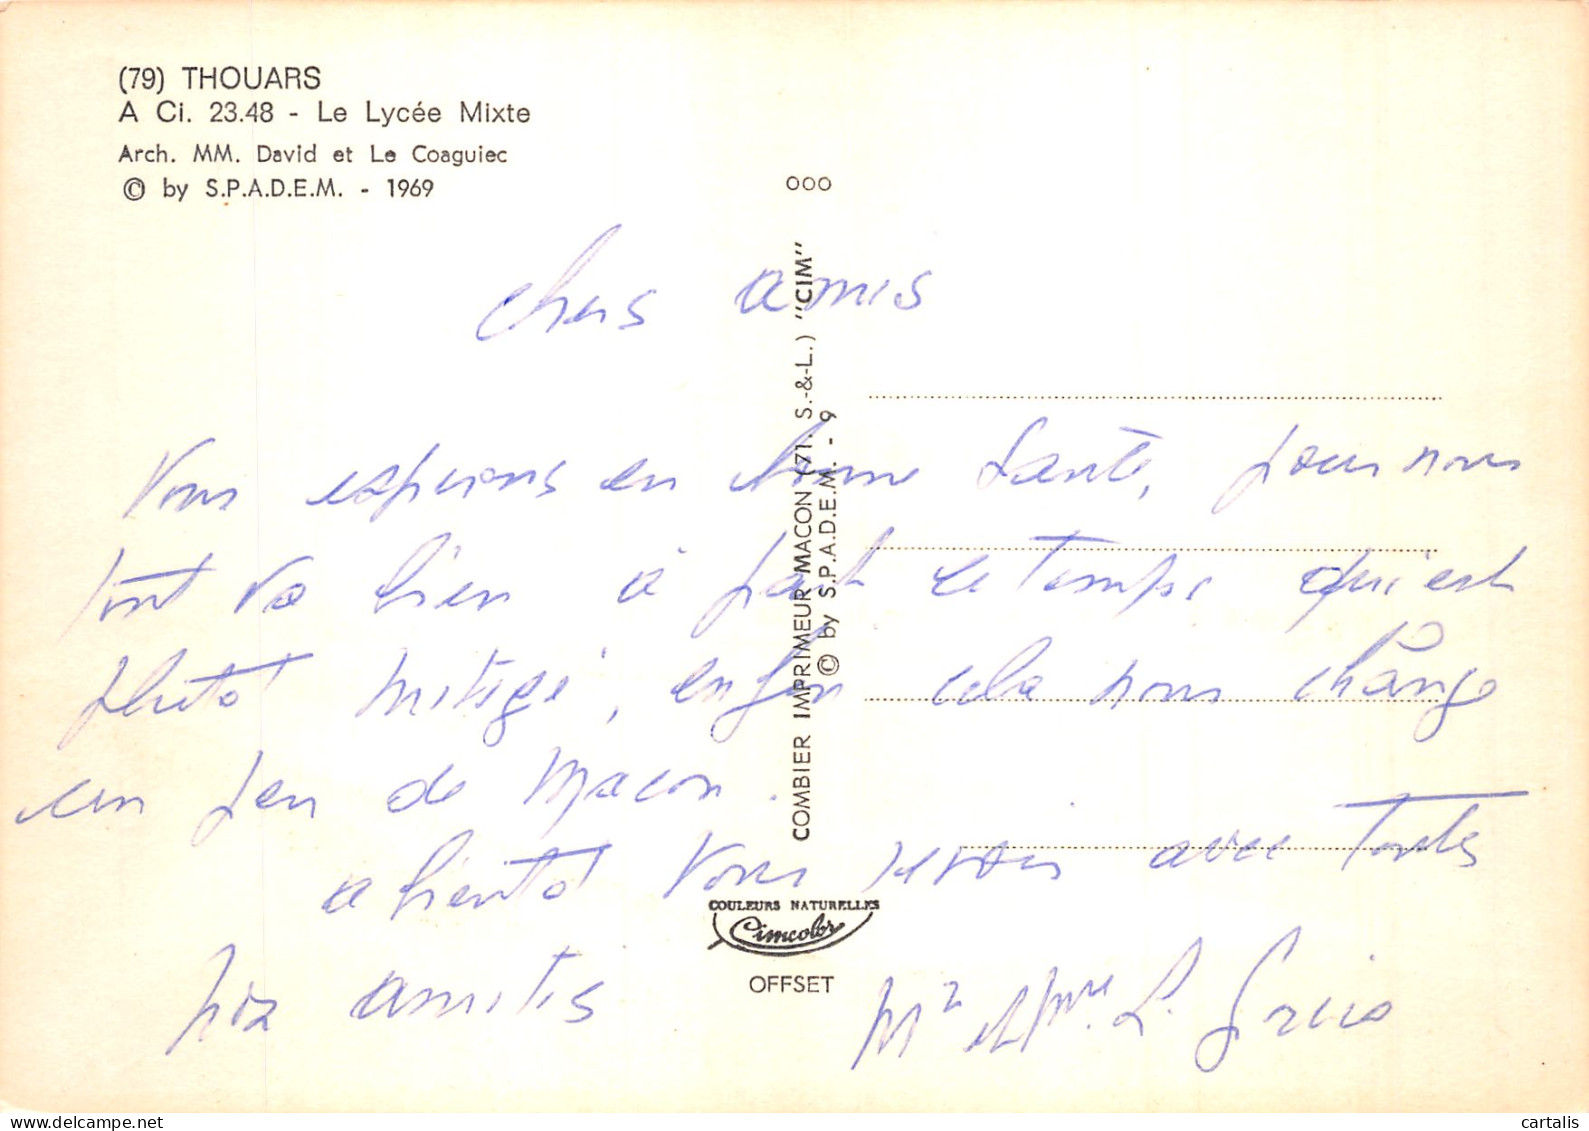 (79) THOUARS
A Ci. 23.48 - Le Lycée Mixte
Arch. MM. David et Le Coaguiec
© by S.P.A.D.E.M. - 1969
000
COMBIER IMPRIMEUR MACON (71. S.-&-L.) "CIM"
© by S.P.A.D.E.M. - 9
Chers amis
Vous espérons en bonne Santé, pour nous
tout va bien à part le temps qui est
plutot mitigé, enfin cela nous change
un peu de Macon.
a bientot Vous revoir avec toutes
nos amitiés
Mr et Mme. L.
COULEURS NATURELLES
Cimcolor
OFFSET
delcampe.net
cartalis